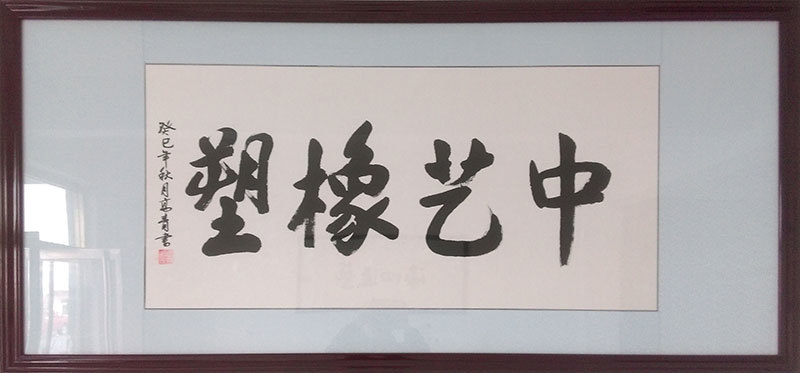 中艺橡塑
癸巳年秋月高青書